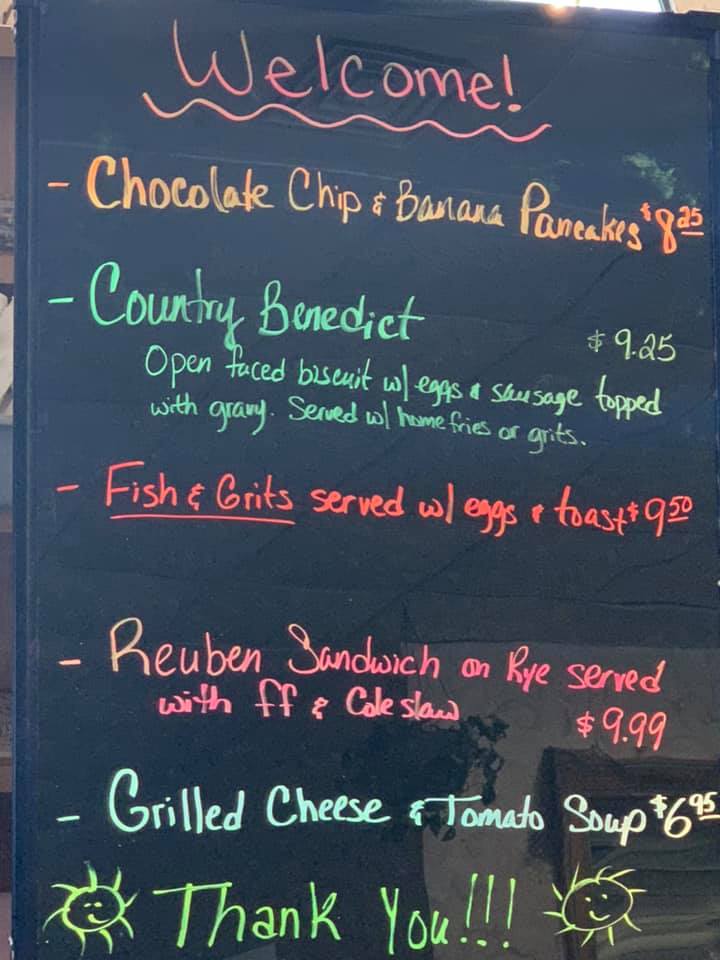 Welcome!
- Chocolate Chip & Banana Pancakes $8.25
- Country Benedict
$9.25
Open faced biscuit w/ eggs & sausage topped
with gravy. Served w/ home fries or grits.
- Fish & Grits served w/ eggs & toast $9.50
- Reuben Sandwich on Rye served
with ff & Cole slaw
$9.99
- Grilled Cheese & Tomato Soup $6.95
Thank You!!!